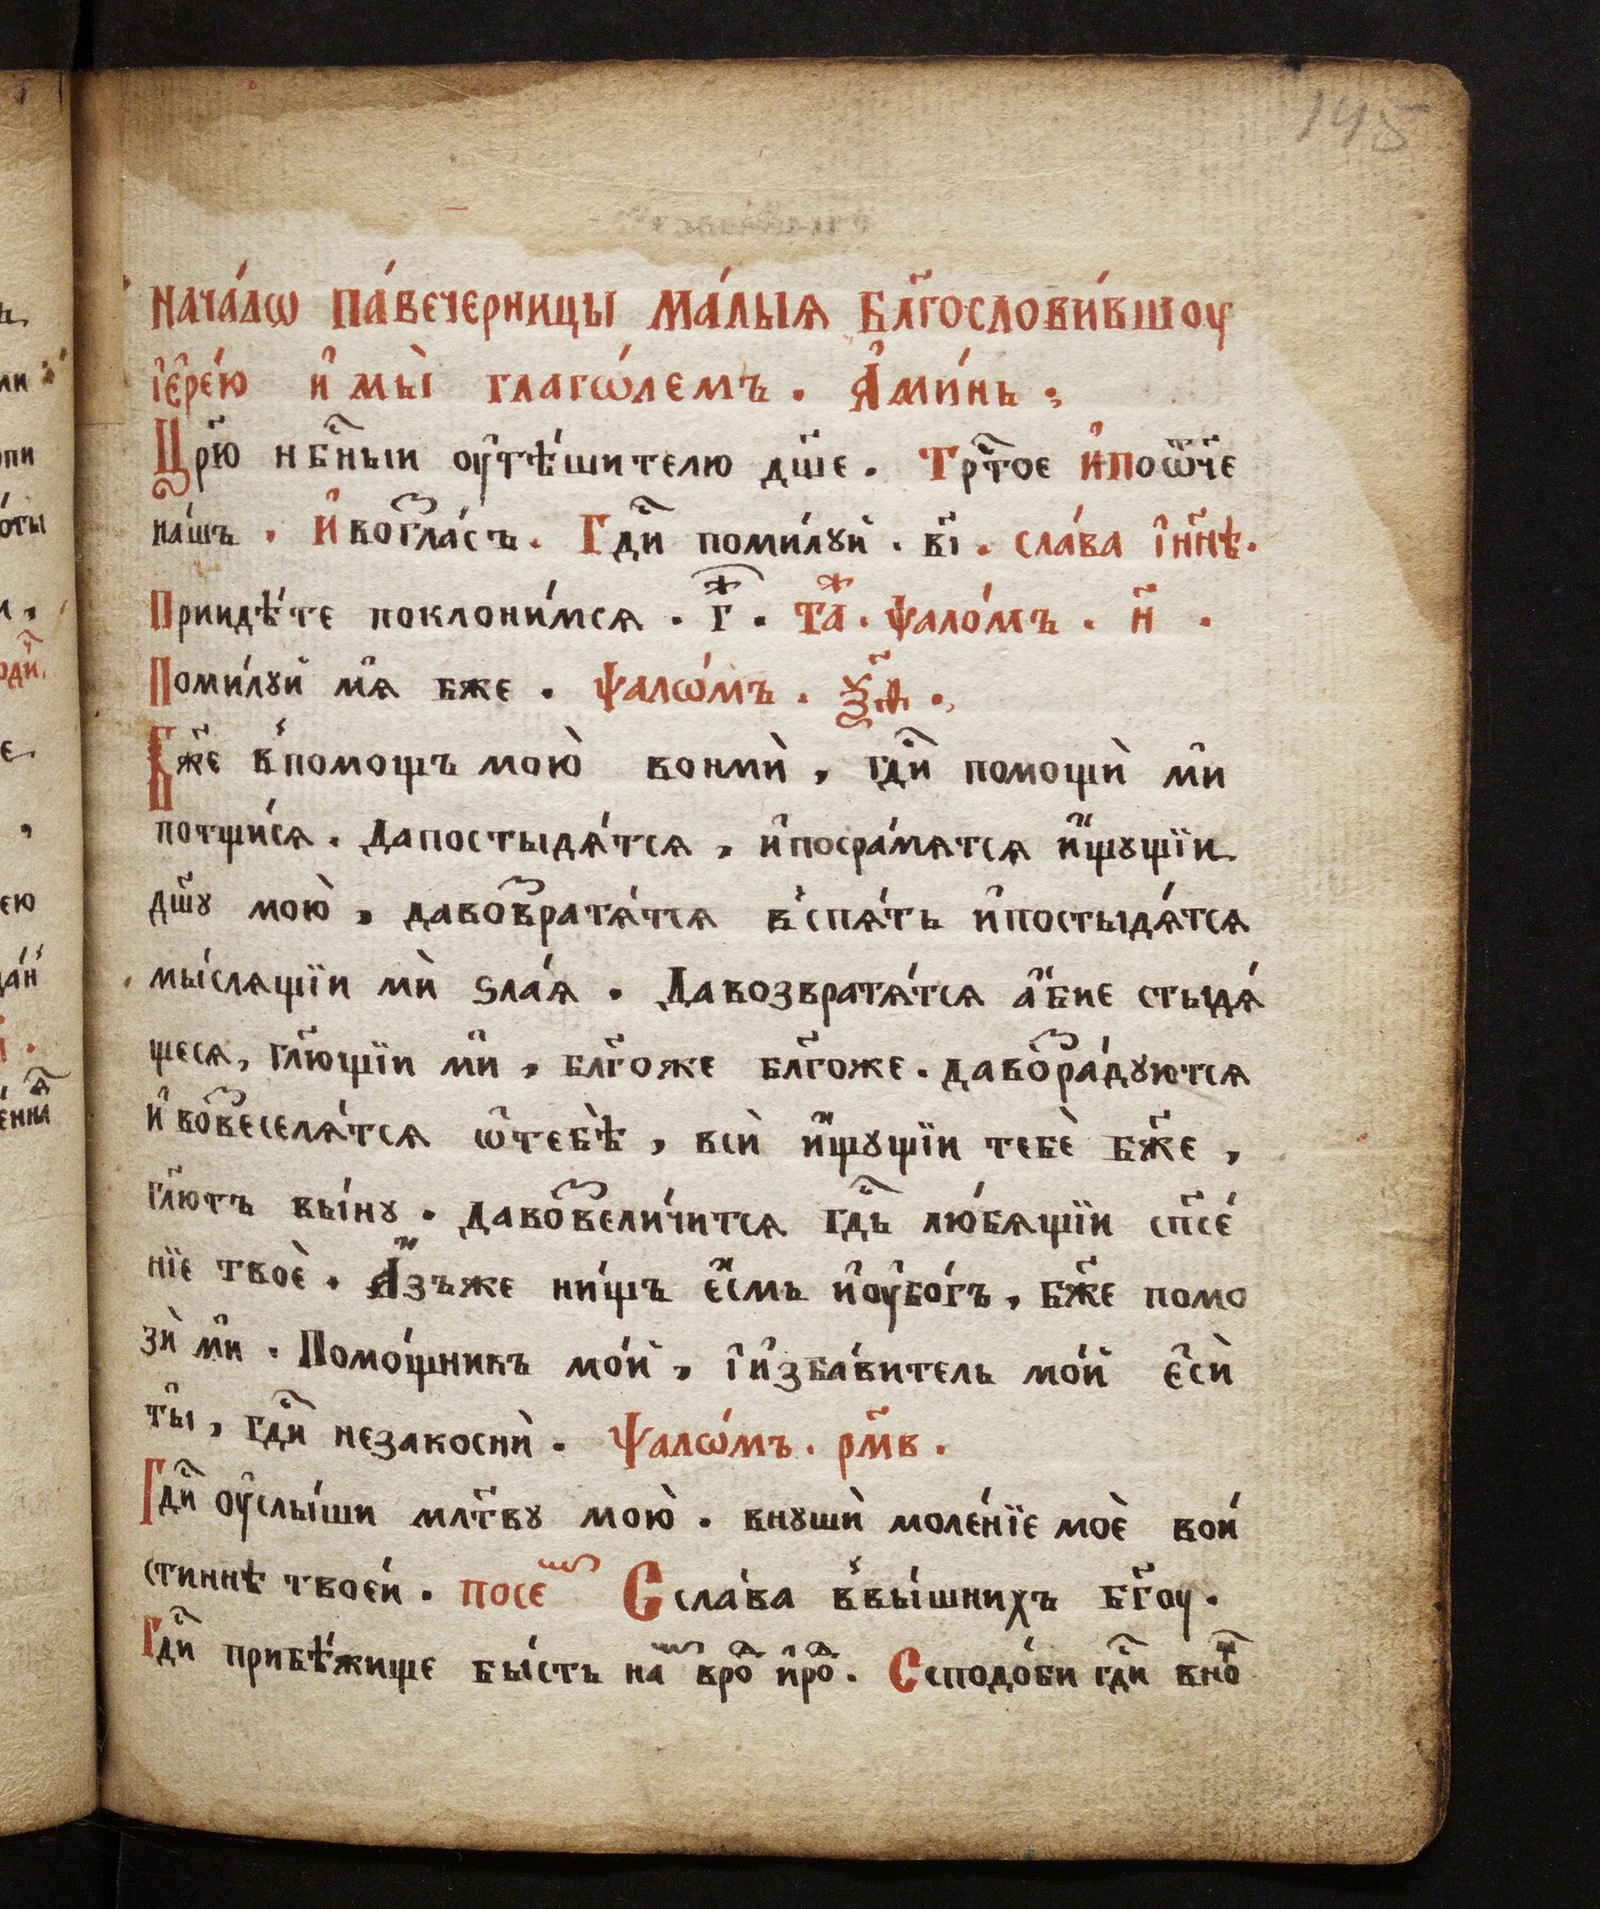 145
нача́лѡ па́вечерницы ма́лыѧ бл҃гослови́вшоу
і҆ере́ю и҆ мы̀ глагѡ́лемъ . А҆ми́нь ;
Цр҃ю нбⷭ҇ныи ѹ҆тѣ́шителю дш҃е . Трⷭ҇тое и҆пѡⷪ҇ч҃е
на́шъ . И҆ воⷥгла́съ . Гдⷭ҇и поми́лꙋй . в҃і . сла́ва і҆нн҃ѣ .
Прїидѣ́те поклони́мсѧ . г҃ⷤ . та҃ⷤ . ѱало́мъ . н҃ .
Поми́лꙋй мѧ̑ бже . Ѱалѡ́мъ . ѯ҃ѳ .
Бж҃е в̾помощъ мою̀ вонмѝ , гдⷭ҇и помощѝ мѝ
потщи́сѧ . Да постыдѧ́тсѧ , и҆посра́мѧтсѧ и҆́щꙋщїи
дш҃ꙋ мою̀ , давоⷥвратѧ́тсѧ в̾спѧ́ть и҆постыдѧ́тсѧ
мы́слѧщїи мѝ ѕла́ѧ . Давозвратѧ́тсѧ а҆́бие стыдѧ́
щесѧ , гл҃ющїи мѝ , бл҃гоже бл҃гоже . давоⷥра́дꙋютсѧ
и҆ воⷥвеселѧ́тсѧ ѡ҆тебѣ̀ , всѝ и҆́щꙋщїи тебѐ бж҃е ,
гл҃ютъ вы́нꙋ . давоⷥвели́читсѧ гдⷭ҇ь лю́бѧщїи сп҃се́
нїе твоѐ . А҆́зъже ни́щъ е҆́смь и҆ѹ҆бо́гъ , бж҃е помо
зѝ мѝ . Помо́щникъ мо́й , і҆и҆зба́витель мо́й є҆сѝ
ты̀ , гдⷭ҇и незакоснѝ . Ѱалѡ́мъ . рм҃в .
Гдⷭ҇и ѹ҆слы́ши мл҃твꙋ мою̀ . внꙋшѝ моле́нїе моѐ вои́
стиннѣ твое́й . посеⷨ Сслава в̾вы́шнихъ бг҃оу .
Гдⷭ҇и прибѣ́жище бы́сть наⷨ вроⷣ и҆роⷣ . Ссподо́би гдⷭ҇и вноⷳ